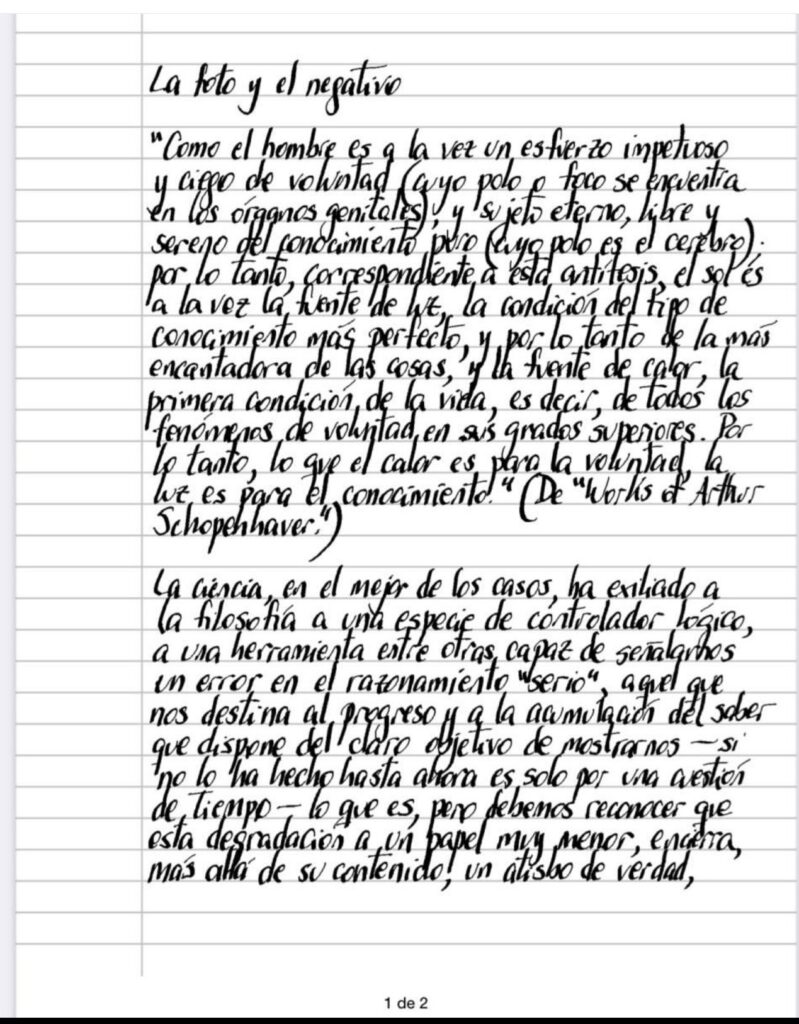 La foto y el negativo
"Como el hombre es a la vez un esfuerzo impetuoso
y ciego de voluntad (cuyo polo o foco se encuentra
en los órganos genitales), y sujeto eterno, libre y
sereno del conocimiento puro (cuyo polo es el cerebro);
por lo tanto, correspondiente a esta antítesis, el sol es
a la vez la fuente de luz, la condición del tipo de
conocimiento más perfecto, y por lo tanto de la más
encantadora de las cosas, y la fuente de calor, la
primera condición de la vida, es decir, de todos los
fenómenos de voluntad en sus grados superiores. Por
lo tanto, lo que el calor es para la voluntad, la
luz es para el conocimiento." (De "Works of Arthur
Schopenhauer.")
La ciencia, en el mejor de los casos, ha exiliado a
la filosofía a una especie de controlador lógico,
a una herramienta entre otras, capaz de señalarnos
un error en el razonamiento "serio", aquel que
nos destina al progreso y a la acumulación del saber
que dispone del claro objetivo de mostrarnos — si
no lo ha hecho hasta ahora es solo por una cuestión
de tiempo — lo que es, pero debemos reconocer que
esta degradación a un papel muy menor, encierra,
más allá de su contenido, un atisbo de verdad,
1 de 2